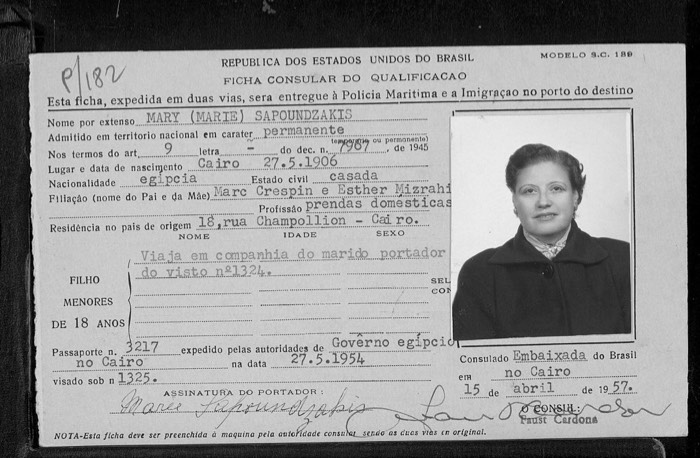 P/182
REPUBLICA DOS ESTADOS UNIDOS DO BRASIL MODELO S.C. 180
FICHA CONSULAR DO QUALIFICACAO
Esta ficha, expedida em duas vias, sera entregue à Policia Maritima e a Imigraçao no porto do destino
Nome por extenso MARY (MARIE) SAPOUNDZAKIS
Admitido em territorio nacional em carater permanente
(temporario ou permanente)
Nos termos do art. 9 letra - do dec. n. 7967, de 1945
Lugar e data de nascimento Cairo 27.5.1906
Nacionalidade egípcia Estado civil casada
Filiação (nome do Pai e da Mãe) Marc Crespin e Esther Mizrahi
Profissão prendas domésticas
Residência no pais de origem 18, rua Champollion - Cairo.
NOME IDADE SEXO
FILHO MENORES DE 18 ANOS
Viaja em companhia do marido portador
do visto nº1324.
SEL
CON
Passaporte n. 3217 expedido pelas autoridades de Govêrno egípcio
no Cairo na data 27.5.1954
visado sob n 1325.
Consulado Embaixada do Brasil
em no Cairo
15 de abril de 1957.
ASSINATURA DO PORTADOR:
Marie Sapoundzakis
O CONSUL:
Faust Cardona
NOTA-Esta ficha deve ser preenchida à maquina pela autoridade consular sendo as duas vias en original.